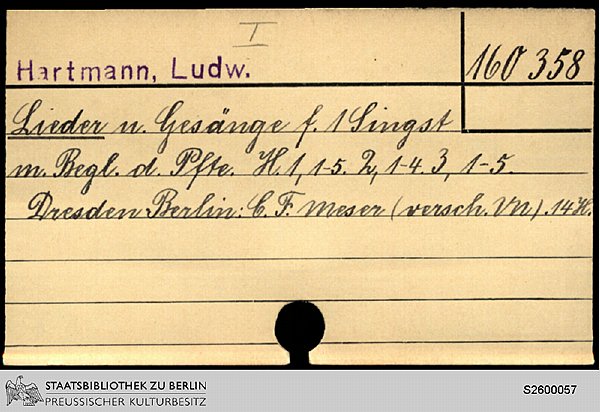 I
Hartmann, Ludw.
160 358
Lieder u. Gesänge f. 1 Singst
m. Begl. d. Pfte. H. 1, 1-5. 2, 1-4. 3, 1-5.
Dresden-Berlin: C. F. Meser (versch. Vn). 14 H.
STAATSBIBLIOTHEK ZU BERLIN
PREUSSISCHER KULTURBESITZ
S2600057